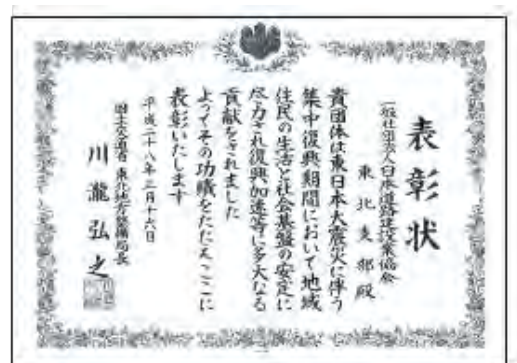 表彰状
一般社団法人日本道路建設業協会
東北支部殿
貴団体は東日本大震災に伴う
集中復興期間において地域
住民の生活と社会基盤の安定に
尽力され復興加速等に多大なる
貢献をされました
よってその功績をたたえここに
表彰いたします
平成二十八年三月十六日
国土交通省 東北地方整備局長
川瀧弘之